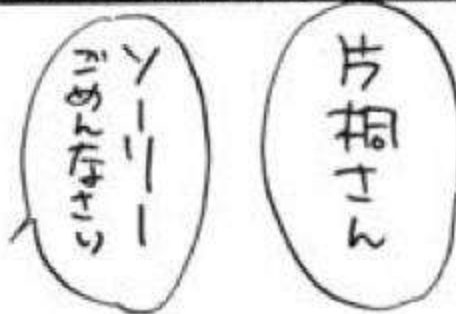 片桐さん
ソーリー
ごめんなさい